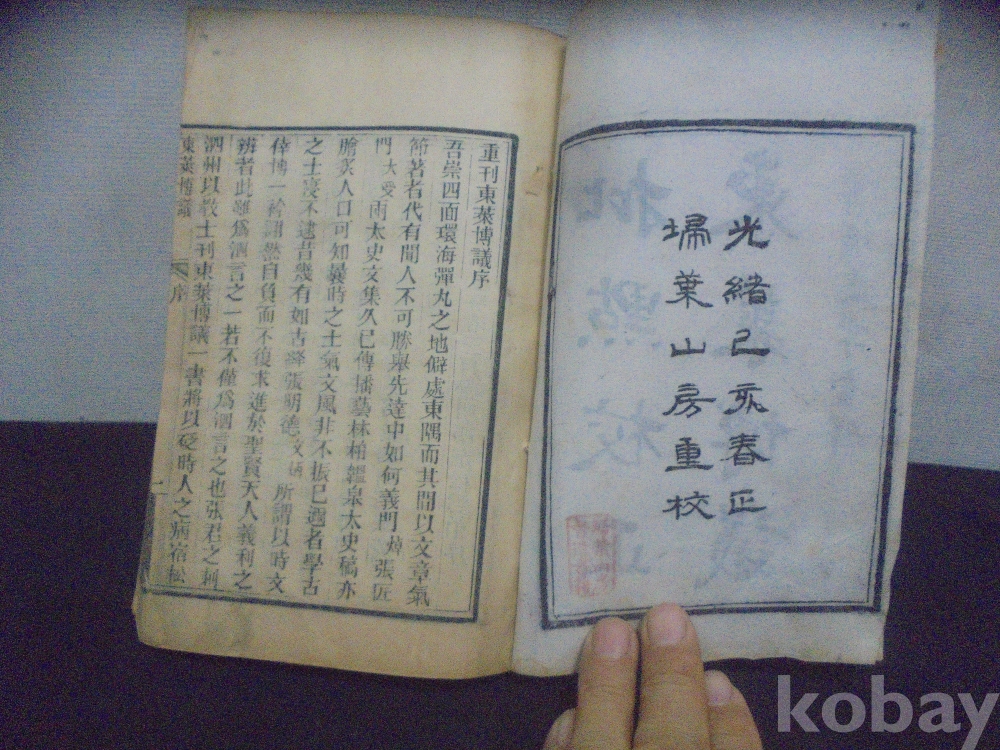 光緒己亥春正
埽葉山房重校
重刊東萊博議序
吾崇四面環海彈丸之地僻處東隅而其間以文章氣
節著者代有聞人不可勝舉先達中如何義門焯張匠
門大受兩太史文集久已傳播藝林柏蘊臯太史稿亦
膾炙人口可知曩時之士氣文風非不振已邇者學古
之士寖不逮昔幾有如古
張明德
所謂以時文
倖博一衿詡然自負而不復求進於聖賢天人義利之
辨者此雖爲泗言之一若不僅爲泗言之也張君之
泗州以教士刊東萊博議一書將以砭時人之病宿松
東萊博議
序
一
kobay